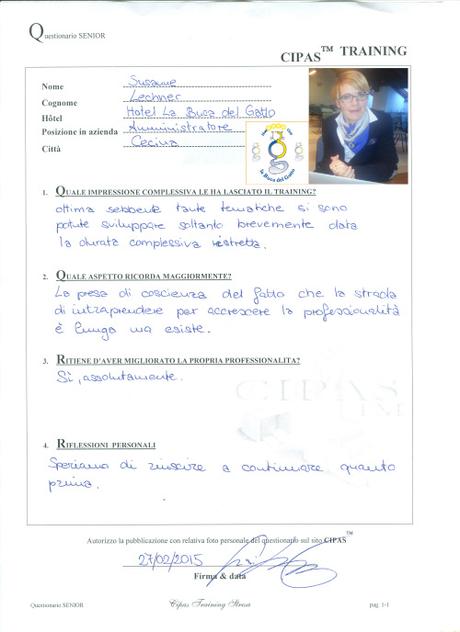 Questionario SENIOR
CIPAS™ TRAINING
Nome Susanne
Cognome Lechner
Hôtel Hotel La Buca del Gatto
Posizione in azienda Amministratore
Città Cecina
la Buca del Gatto
1. QUALE IMPRESSIONE COMPLESSIVA LE HA LASCIATO IL TRAINING?
ottima sebbene tante tematiche si sono
potute sviluppare soltanto brevemente data
la durata complessiva ristretta.
2. QUALE ASPETTO RICORDA MAGGIORMENTE?
La presa di coscienza del fatto che la strada
di intraprendere per accrescere la professionalità
è lunga ma esiste.
3. RITIENE D'AVER MIGLIORATO LA PROPRIA PROFESSIONALITA?
Sì, assolutamente.
CIPAS
4. RIFLESSIONI PERSONALI
Speriamo di riuscire a continuare quanto
prima.
Autorizzo la pubblicazione con relativa foto personale del questionario sul sito CIPAS™
27/02/2015
Firma & data
Questionario SENIOR
Cipas Training Stresa
pag. 1-1